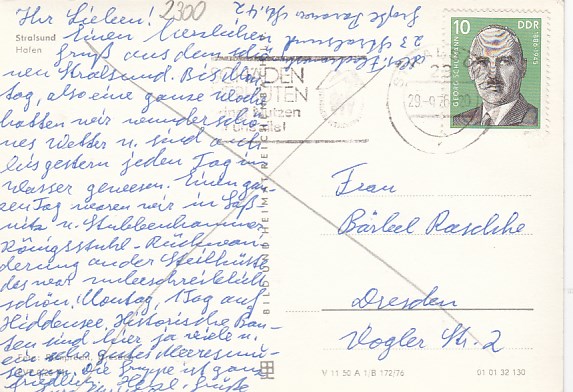 Ihr Lieben!
2300
Einen herzlichen
Gruß aus dem
nen Stralsund. Bis
tag, also eine ganze Woche
hatten wir wunderschö-
nes Wetter u. sind auch
bis gestern jeden Tag im
Wasser gewesen. Einen gan-
zen Tag waren wir in Saß-
nitz u. Stubbenkammer
Königsstuhl - Rückwan-
derung an der Steilküste
des war unbeschreiblich
schön! Montag, 1 Tag auf
Hiddensee. Historische Bau-
ten sind hier ja viele u.
ein sehr gutes Meeresmu-
seum. Die Gruppe ist ganz
friedlich. Grüße
23 Stralsund
Große Parower Str. 42
Stralsund
Hafen
BILD UND HEIM REICHENBACH
10
DDR
GEORG SCHUMANN
1886-1945
29-9.76
Frau
Bärbel Rasche
Dresden
Vogler Str. 2
V 11 50 A 1/B 172/76
01 01 32 130